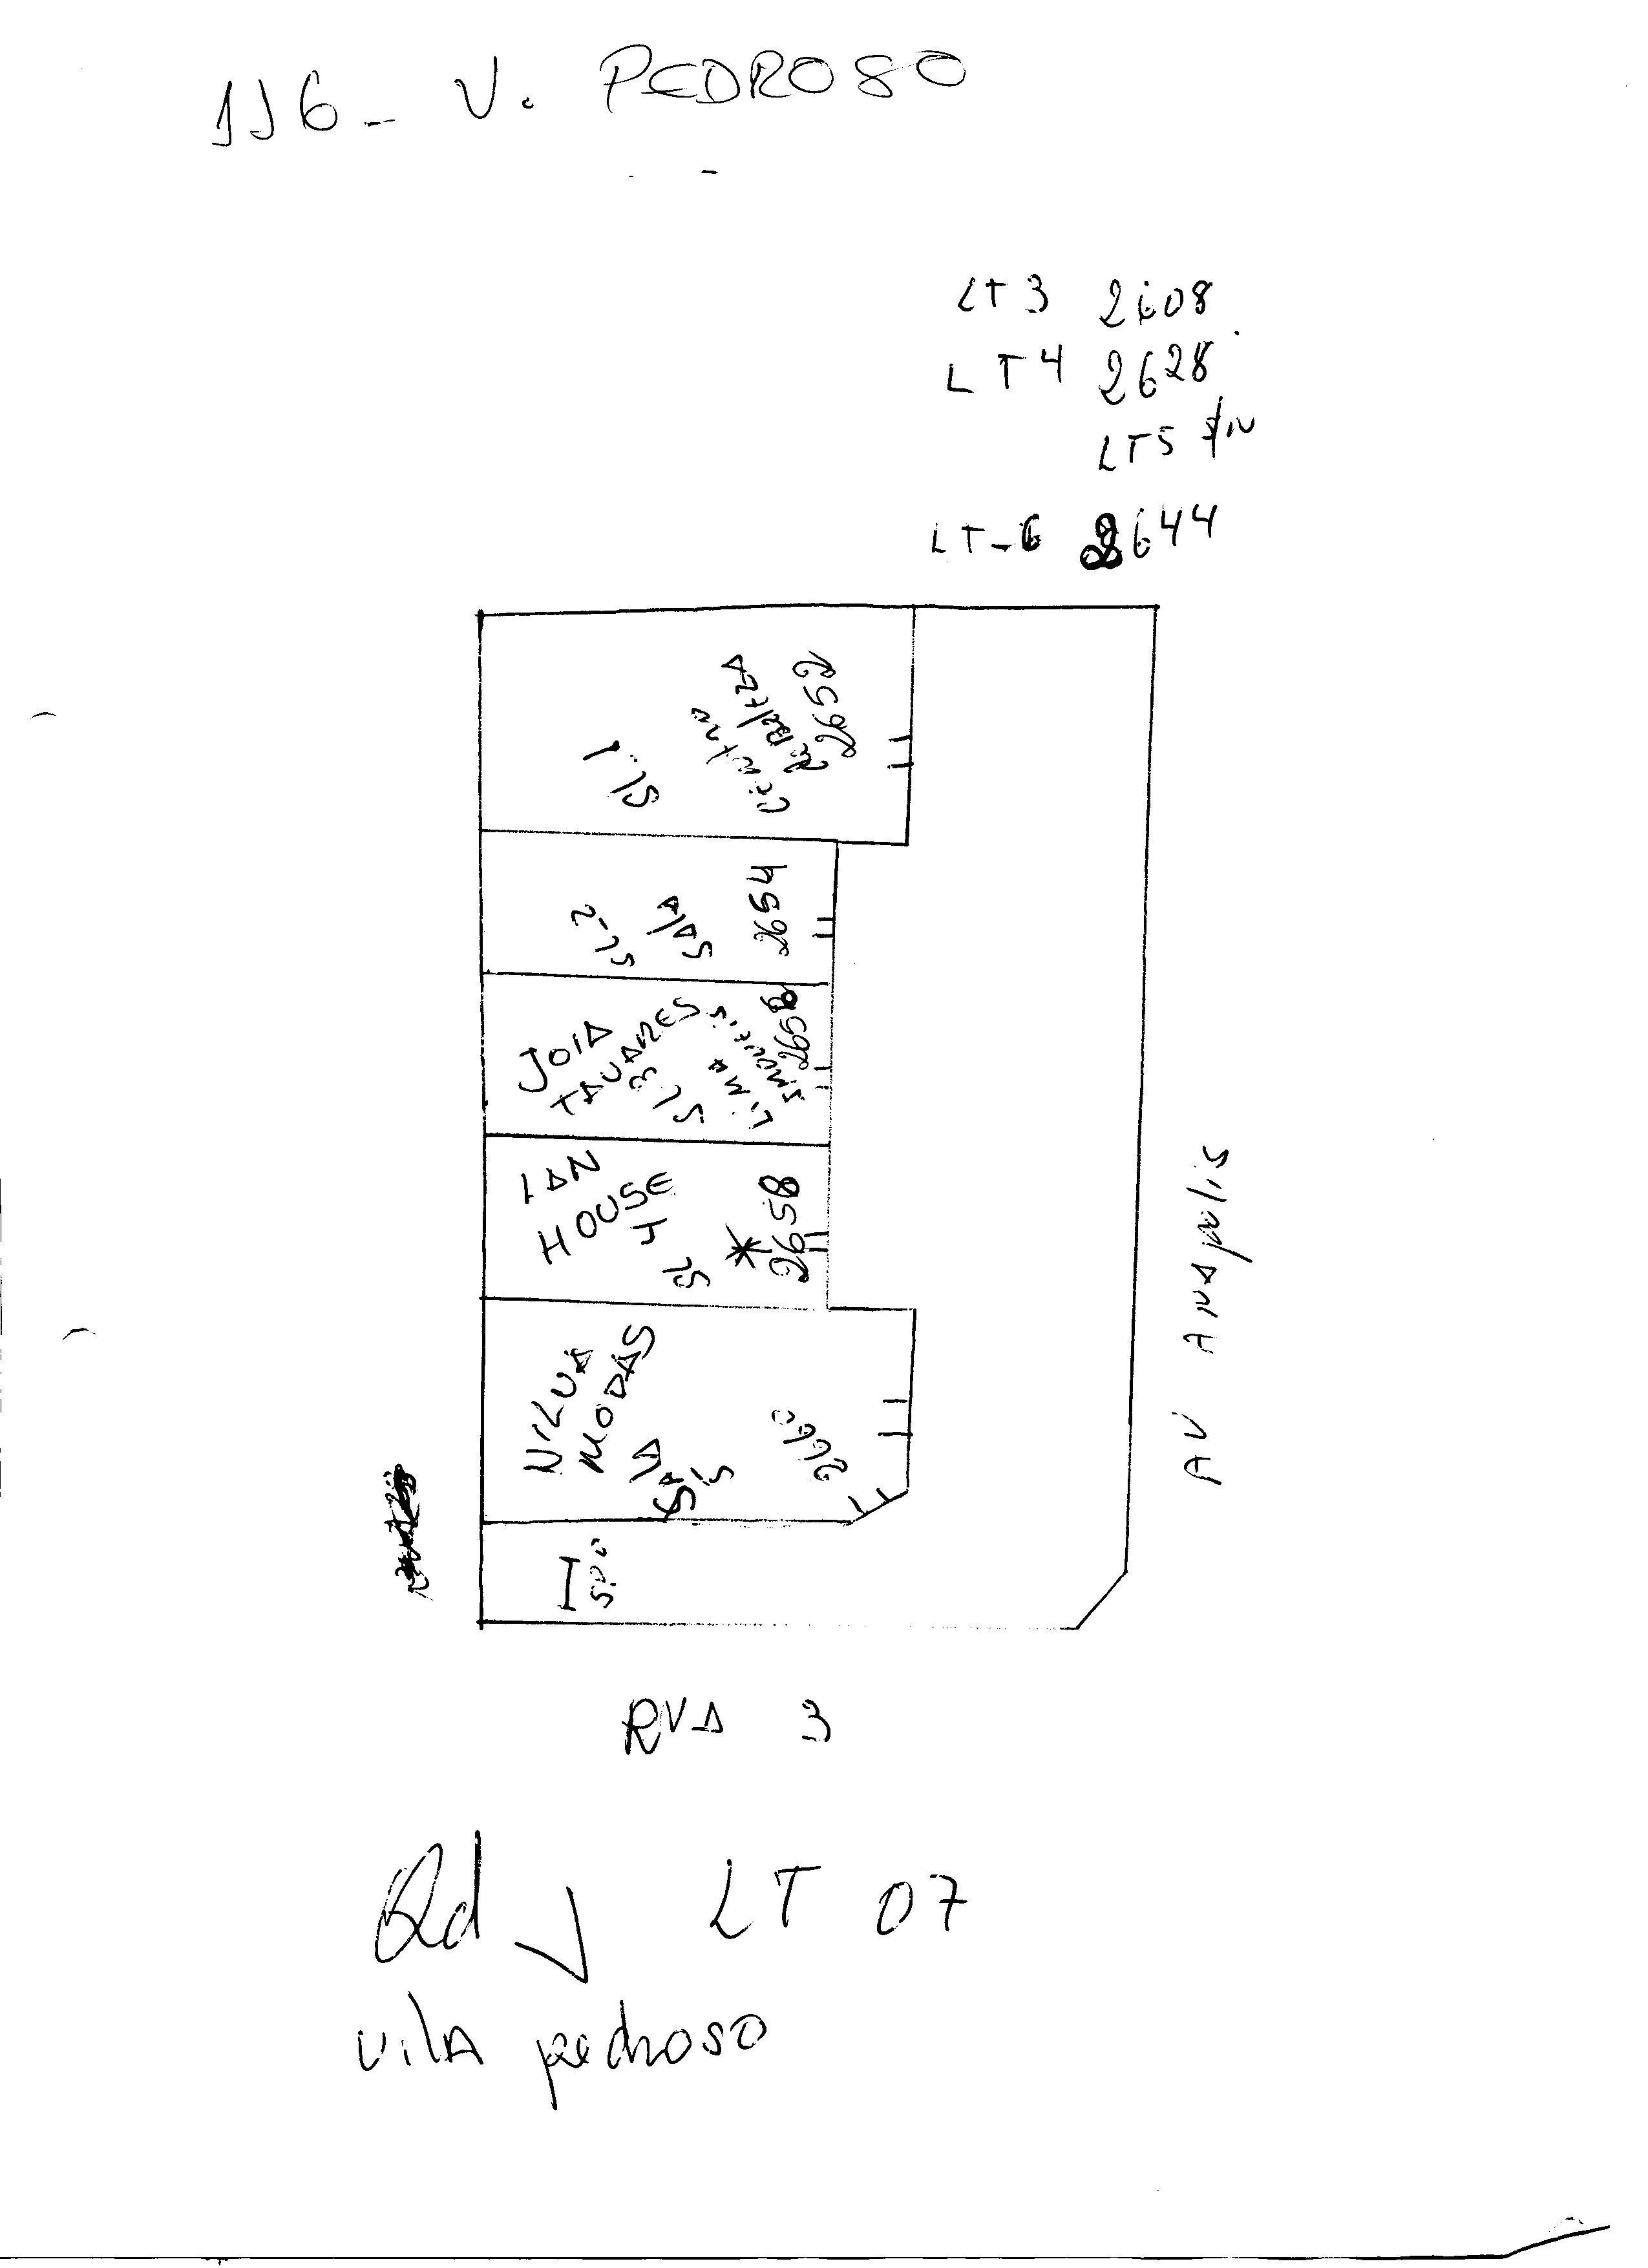 116 - V. PEDROSO
LT 3 2608
LT 4 2628
LT 5
LT-6 2644
SL. 1
2652
SL-2
SALA
2654
JOIA
TAVARES
SL 3
LIMA
IMOVEIS
2656
LAN
HOUSE
SL 4
* 2658
NILVA
MODAS
SALA
5
2660
AV ANApolis
RUA 3
Qd V LT 07
vilA pedroso